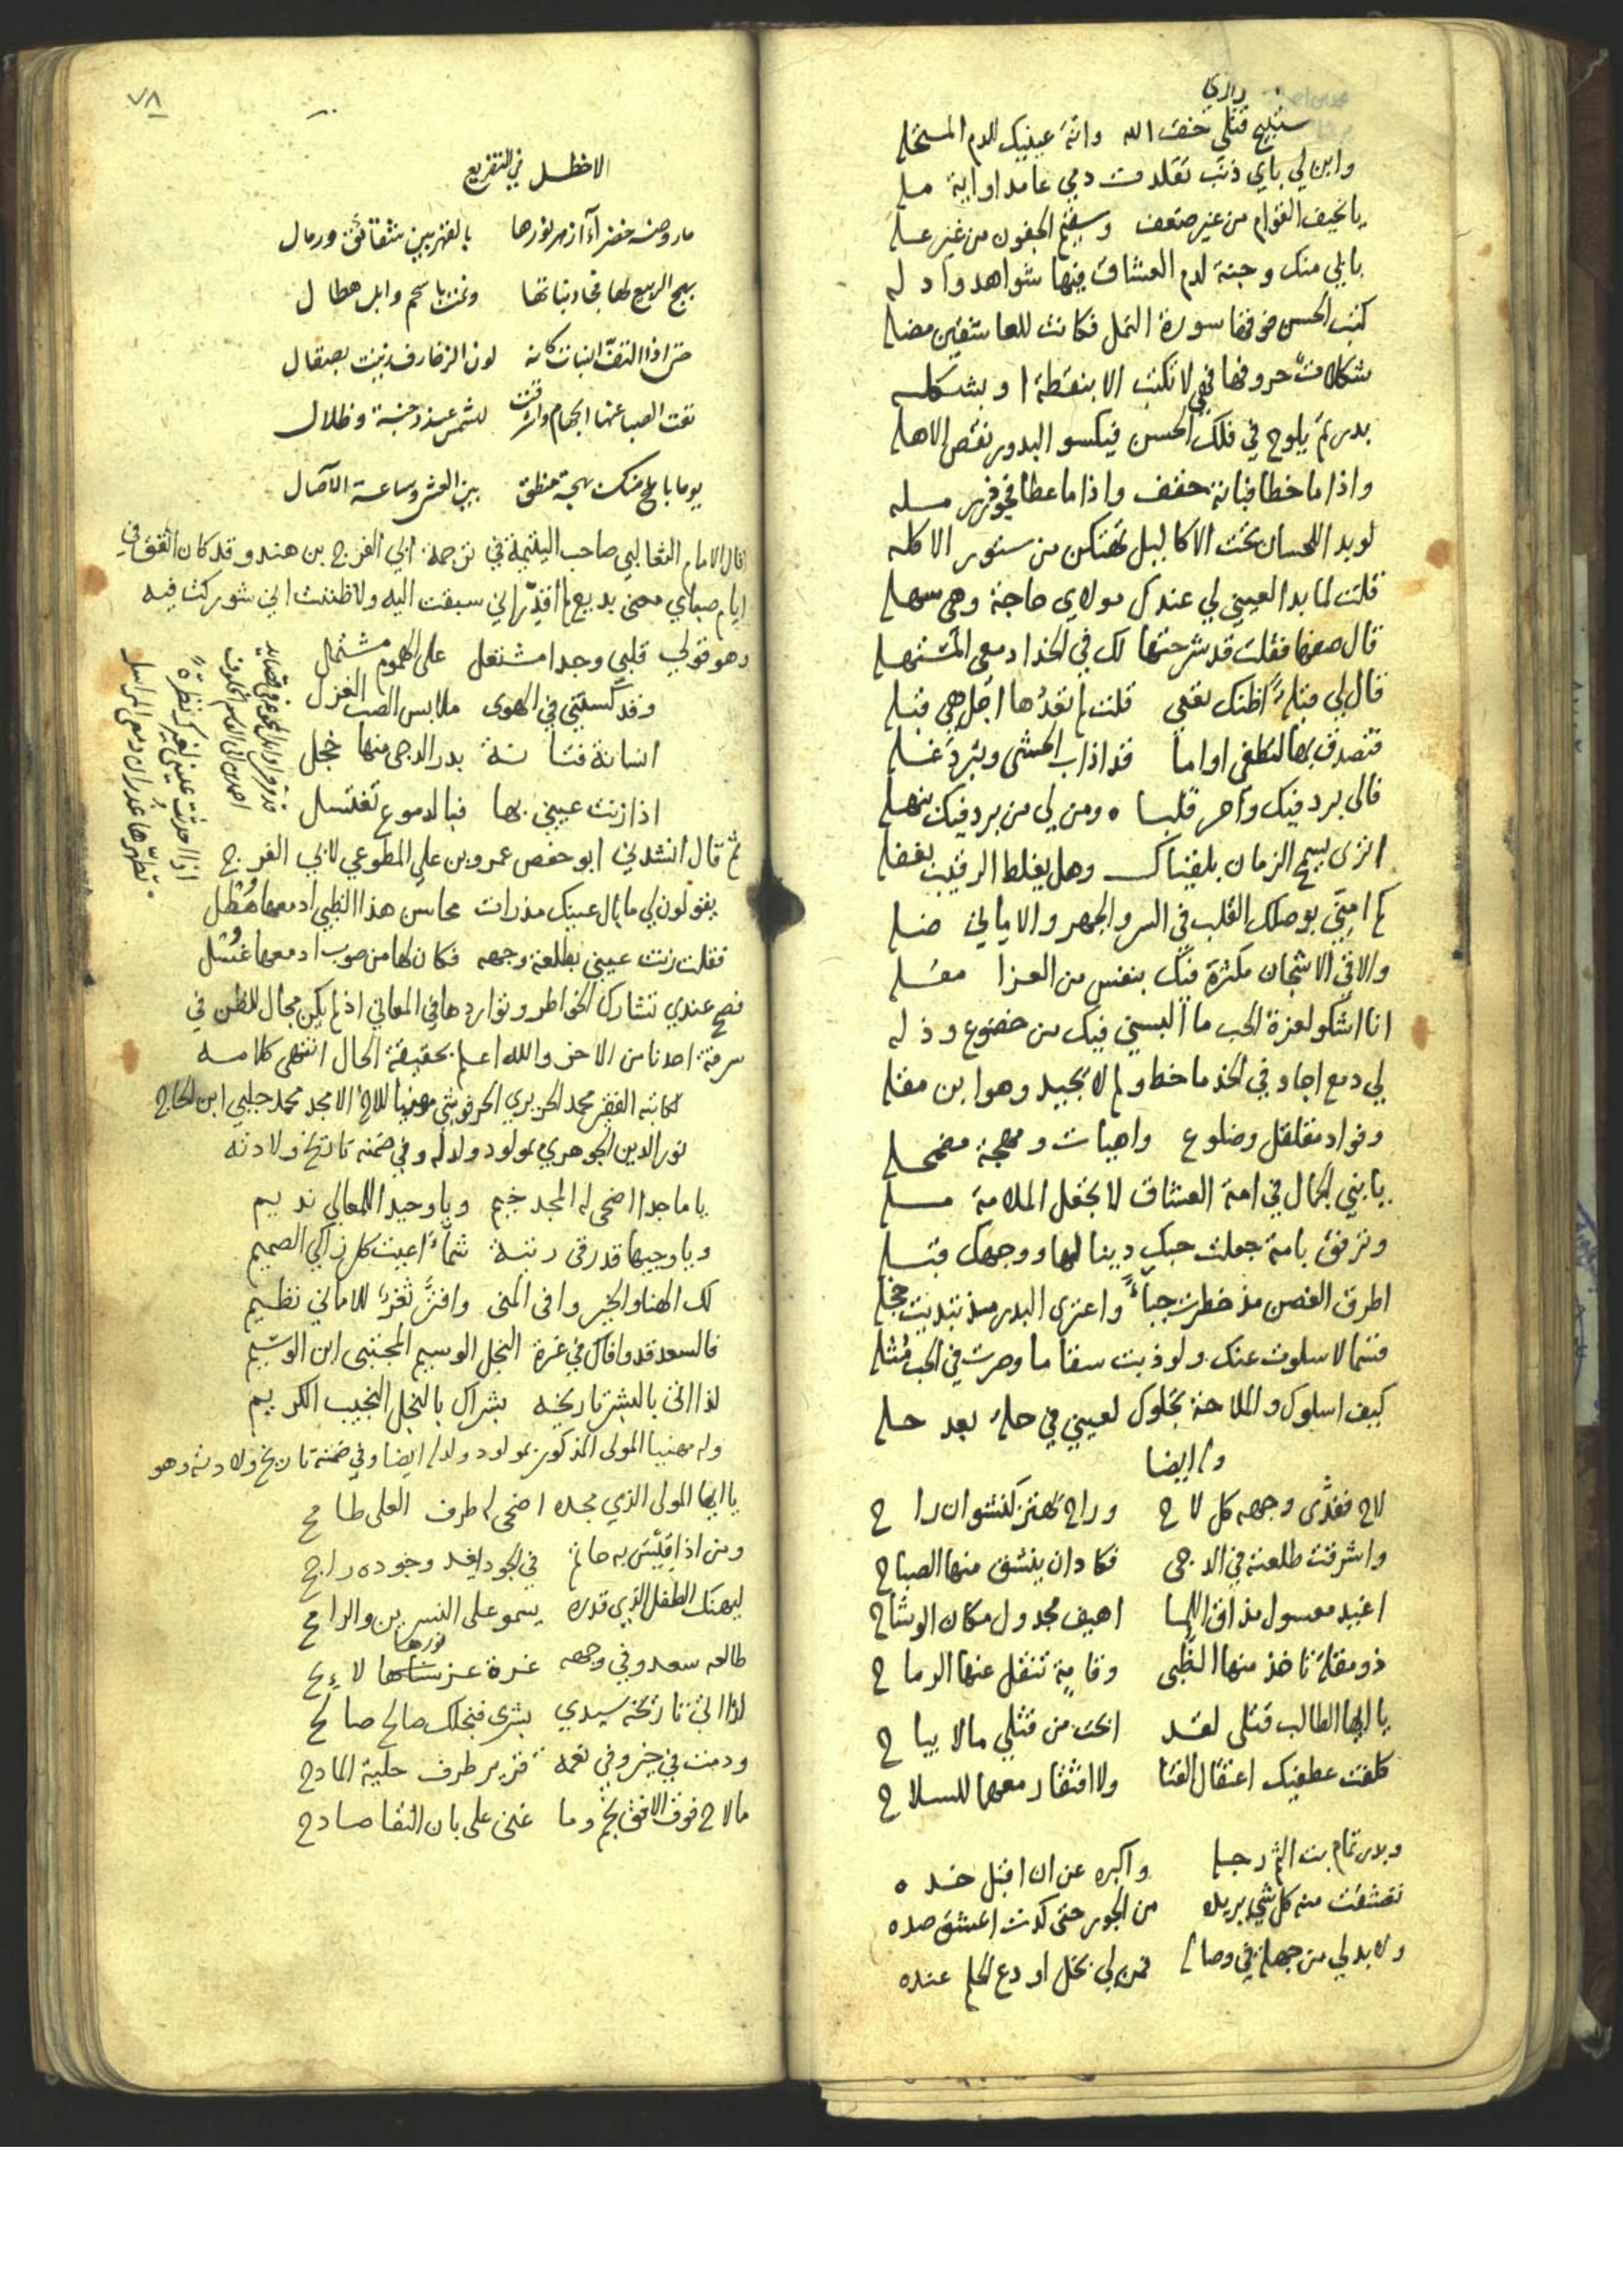 رازي
ستبيح قتلي خف الله وانه عينيك للدم المستحله
وابن لي باي ذنب تقلدت دمي عامدا واية مله
يا نحيف القوام من غير ضعف وسقيم الجفون من غير عله
بابي منك وجنة لدم العشاق فيها شواهد وادله
كتب الحسن فوقها سورة النمل فكانت للعاشقين مضله
شكلات حروفها فهي لا تكتب الا بنقطة او بشكله
بدر تم يلوح في فلك الحسن فيكسو البدور نقص الاهله
واذا ما خطا فبانة حقف واذا ما عطا فجوذر مله
لو بدا للحسان تحت الاكاليل لهتكن من ستور الاكله
قلت لما بدا لعيني لي عندك مولاي حاجة وهي سهله
قال صفها فقلت قد شرحتها لك في الخد ادمعي المستهله
قال لي قبلة اظنك تعني قلت لم تعدها اجل هي قبله
فتصدق بها لتطفي اواما قد اذاب الحشى وتبرد غله
قال برد فيك واحر قلبا ومن لي من برد فيك بنهله
اترى يسمح الزمان بلقياك وهل يغلط الرقيب بغفله
كم امني بوصلك القلب في السر والجهر والاماني ضله
والاقي الاشجان مكثرة فيك بنفس من العزا مقله
انا اشكو لعزة الحب ما البسني فيك من خضوع وذله
لي دمع اجاد في الخد ما خط ولم لا يجيد وهو ابن مقله
وفواد مقلقل وضلوع واهيات ومهجة مضمحله
يا بني الجمال في امة العشاق لا تحفل الملامة مله
وترفق بامة جعلت حبك دينا لها ووجهك قبله
اطرق الغصن مذ خطرت حياء واعترى البدر مذ تبديت خجله
قسما لا سلوت عنك ولو ذبت سقاما وصرت في الحب مثله
كيف اسلوك والملاحة تجلوك لعيني في حلة بعد حله
وله ايضا
لاح ففدى وجهه كل لاح وراح يهتز كنشوان راح
واشرقت طلعته في الدجى فكاد ان ينشق منها الصباح
اغيد معسول مذاق اللما اهيف مجدول مكان الوشاح
ذو مقلة تاخذ منها الظبى وقامة تنقل عنها الرماح
يا ايها الطالب قتلى لقد ابحت من قتلي ما لا يباح
كلفت عطفيك اعتقال القنا ولا افتقار معها للسلاح
وبدر تمام بت الثم رجله واكبره عن ان اقبل خده
تعشقت منه كل شي يريده من الجور حتى كدت اعشق صده
ولا بد لي من جهلة في وصاله فمن لي بخل اودع الحلم عنده
٧٨
الاخطل في التفريع
ما روضة خضرآء ازهر نورها بالقهر بين شقائق ورمال
بهج الربيع لها فجاد نباتها ونمت باسحم وابل هطال
حتى اذا التف النبات كانه لون الزخارف زينت بصقال
نفت الصبا عنها الجهام واشرقت للشمس عند دجنة وظلال
يوما باملح منك بهجة منطق بين العشي وساعة الآصال
قال الامام الثعالبي صاحب اليتيمة في ترجمة ابي الفرج بن هندو قد كان اتفق في
ايام صباي معنى بديع لم اقدر اني سبقت اليه ولا ظننت اني شوركت فيه
وهو قولي قلبي وجدا مشتغل على الهموم مشتمل
وقد كستني في الهوى ملابس الصب الغزل
انسانة فتانة بدر الدجى منها خجل
اذا زنت عيني بها فبالدموع تغتسل
ثم قال انشدني ابو حفص عمرو بن علي المطوعي لابي الفرج
يقولون لي ما بال عينيك مذ رات محاسن هذا الظبي ادمعها هطل
فقلت زنت عيني بطلعة وجهه فكان لها من صوب ادمعها غسل
فصح عندي تشارك الخواطر وتواردها في المعاني اذ لم يكن مجال للظن في
سرقة احدنا من الاخر والله اعلم بحقيقة الحال انتهى كلامه
لكاتبه الفقير محمد الحريري الحرفوشي مهنيا للاخ الامجد محمد جلبي ابن الحاج
نور الدين الجوهري بمولود ولد له وفي ضمنه تاريخ ولادته
يا ماجدا اضحى له المجد خيم ويا وحيدا للمعالي نديم
ويا وجيها قد رقى رتبة شماء اعيت كل زاكي الصميم
لك الهنا والخير وافى المنى وافتر ثغر للاماني نظيم
فالسعد قد وافاك في غرة النجل الوسيم المجتبى ابن الوسيم
لذا اتى بالبشر تاريخه بشراك بالنجل النجيب الكريم
وله مهنيا المولى المذكور بمولود ولد له ايضا وفي ضمنه تاريخ ولادته وهو
يا ايها المولى الذي مجده اضحى له طرف العلى طامح
ومن اذا قيس به حاتم في الجود يغد وجوده راجح
ليهنك الطفل الذي قدره يسمو على النسرين والرامح
طالعه سعد وفي وجهه غرة عز نورها لائح
لذا اتى تاريخه سيدي بشرى فنجلك صالح صالح
ودمت في خير وفي نعمة قرير طرف حلية المادح
ما لاح فوق الافق نجم وما غنى على بان النقا صادح
اذا احرزت عيني لغيرك نظرة
تطهرها غدران دمعي المراسل